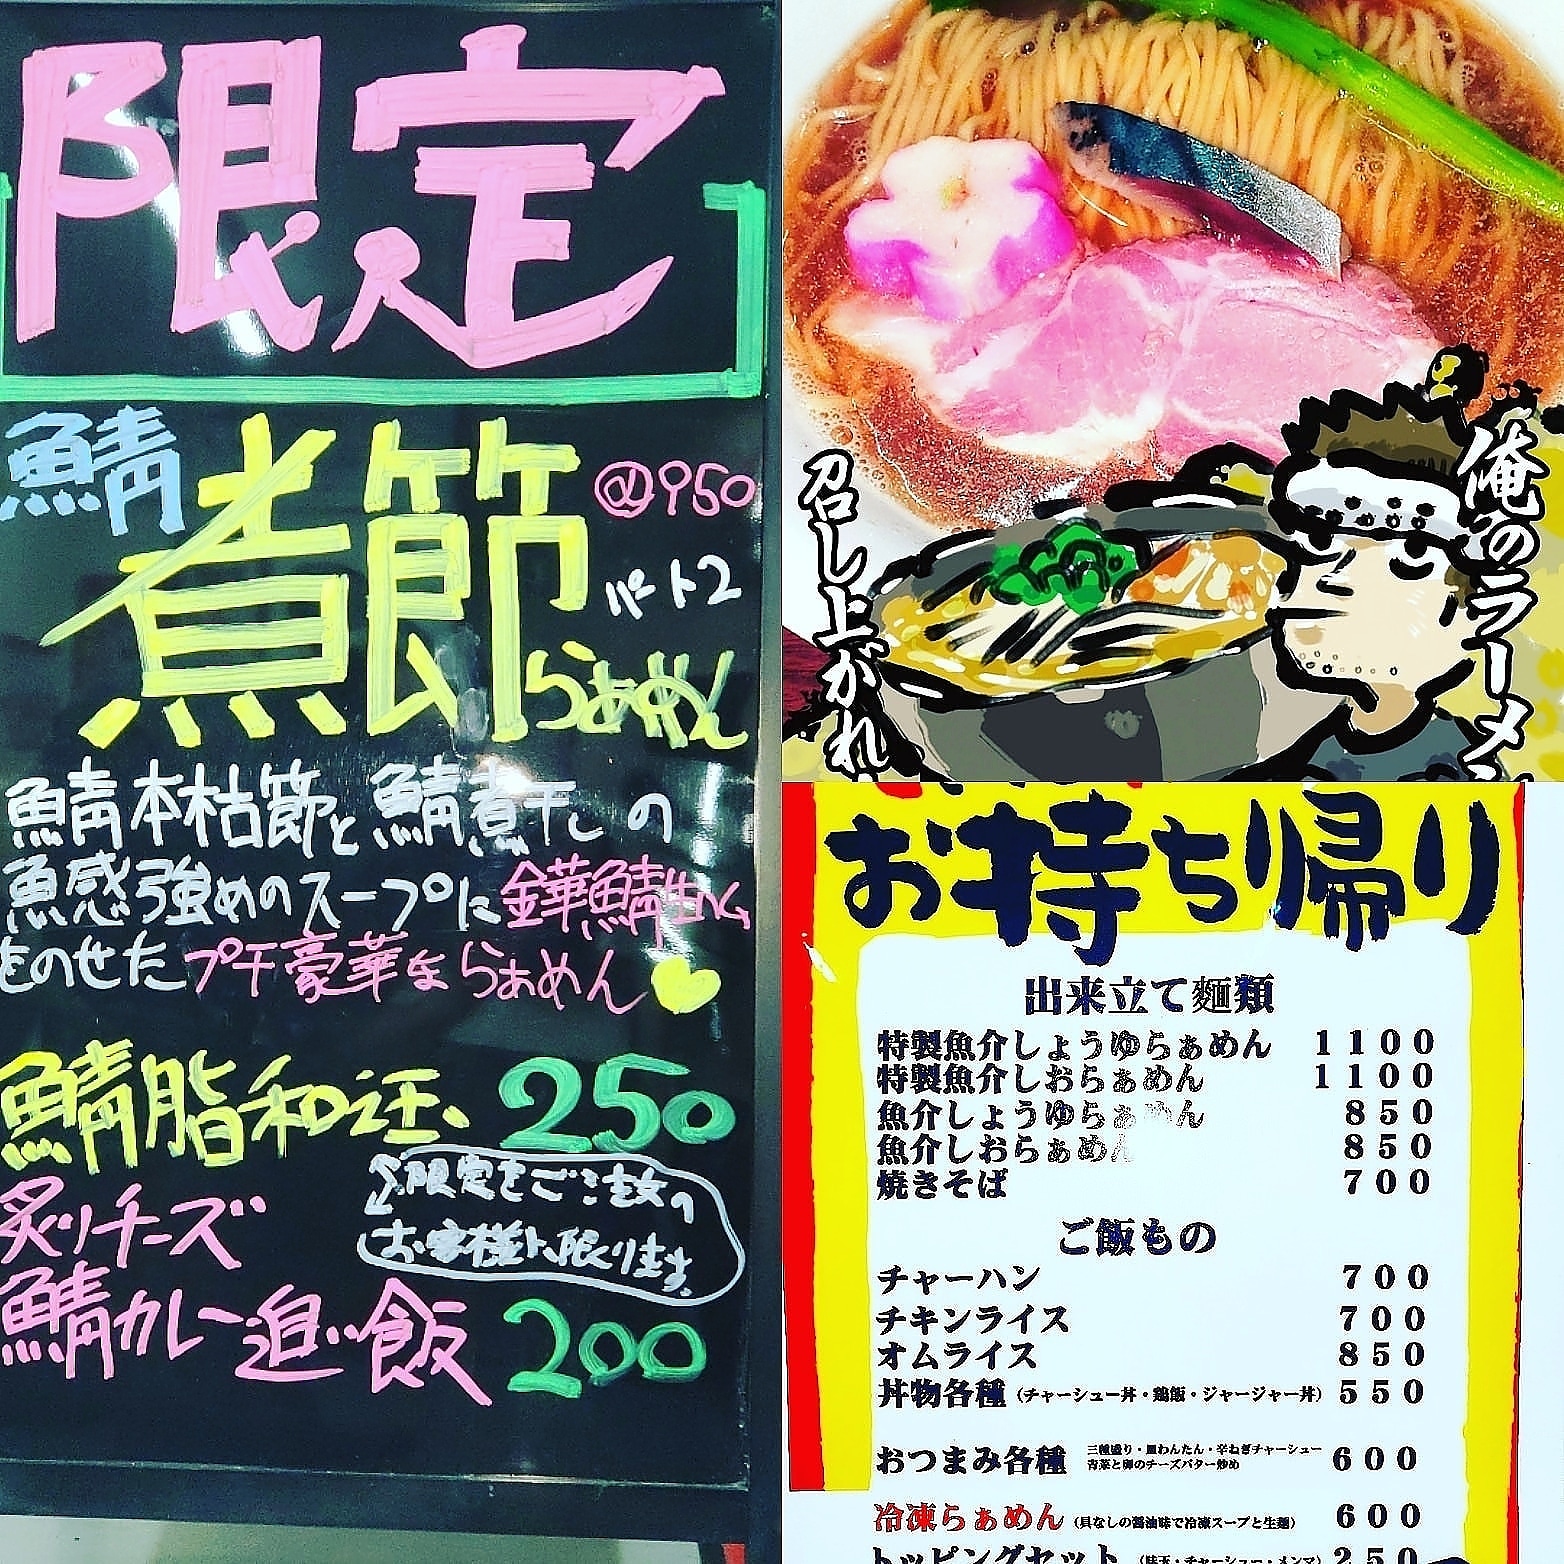 限定
鯖
煮節
@950
パート2
らぁめん
鯖本枯節と鯖煮干しの
魚感強めのスープに金華鯖生ハム
をのせたプチ豪華ならぁめん
鯖脂和え玉 250
限定をご注文の
お客様に限ります。
炙りチーズ
鯖カレー追い飯 200
俺のラーメン
召し上がれ
お持ち帰り
出来立て麺類
特製魚介しょうゆらぁめん 1100
特製魚介しおらぁめん 1100
魚介しょうゆらぁめん 850
魚介しおらぁめん 850
焼きそば 700
ご飯もの
チャーハン 700
チキンライス 700
オムライス 850
丼物各種(チャーシュー丼・鶏飯・ジャージャー丼) 550
おつまみ各種 三種盛り・皿わんたん・辛ねぎチャーシュー
青菜と卵のチーズバター炒め 600
冷凍らぁめん(具なしの醤油味で冷凍スープと生麺) 600
トッピングセット (味玉・チャーシュー・メンマ) 250